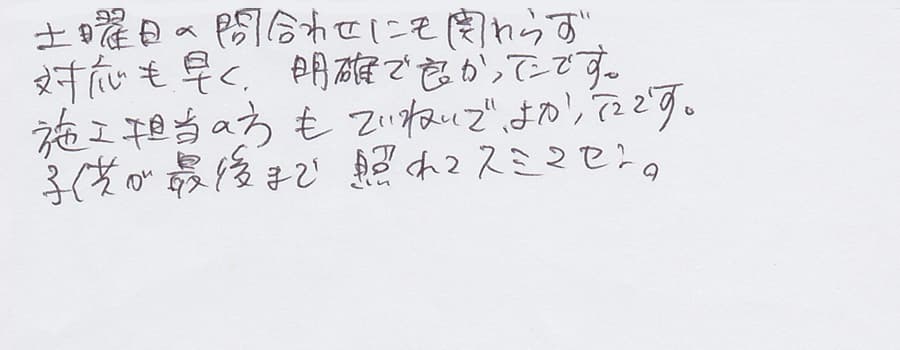 土曜日の問合わせにも関わらず
対応も早く、明確で良かったです。
施工担当の方も ていねいで、よかったです。
子供が最後まで 照れてスミマセン。